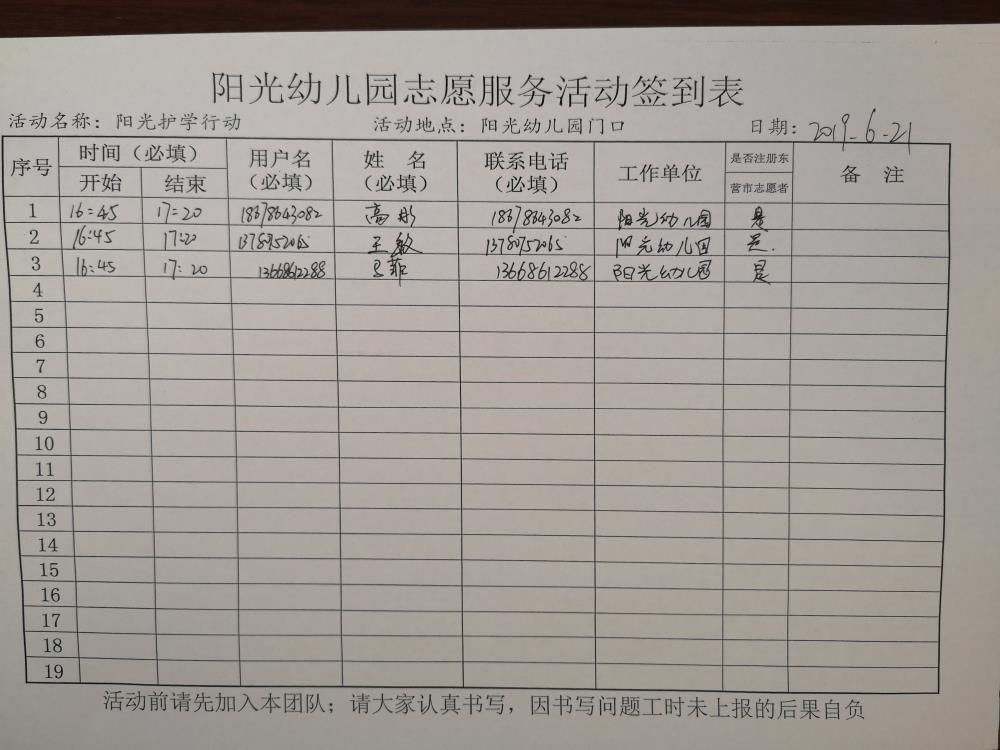 阳光幼儿园志愿服务活动签到表
活动名称：阳光护学行动 活动地点：阳光幼儿园门口 日期：2019-6-21
序号 时间（必填） 用户名（必填） 姓 名（必填） 联系电话（必填） 工作单位 是否注册东营市志愿者 备 注
开始 结束
1 16:45 17:20 18678643082 高彤 18678643082 阳光幼儿园 是
2 16:45 17:20 13780752065 王敏 13780752065 阳光幼儿园 是.
3 16:45 17:20 13668612288 菲 13668612288 阳光幼儿园 是
4
5
6
7
8
9
10
11
12
13
14
15
16
17
18
19
活动前请先加入本团队；请大家认真书写，因书写问题工时未上报的后果自负